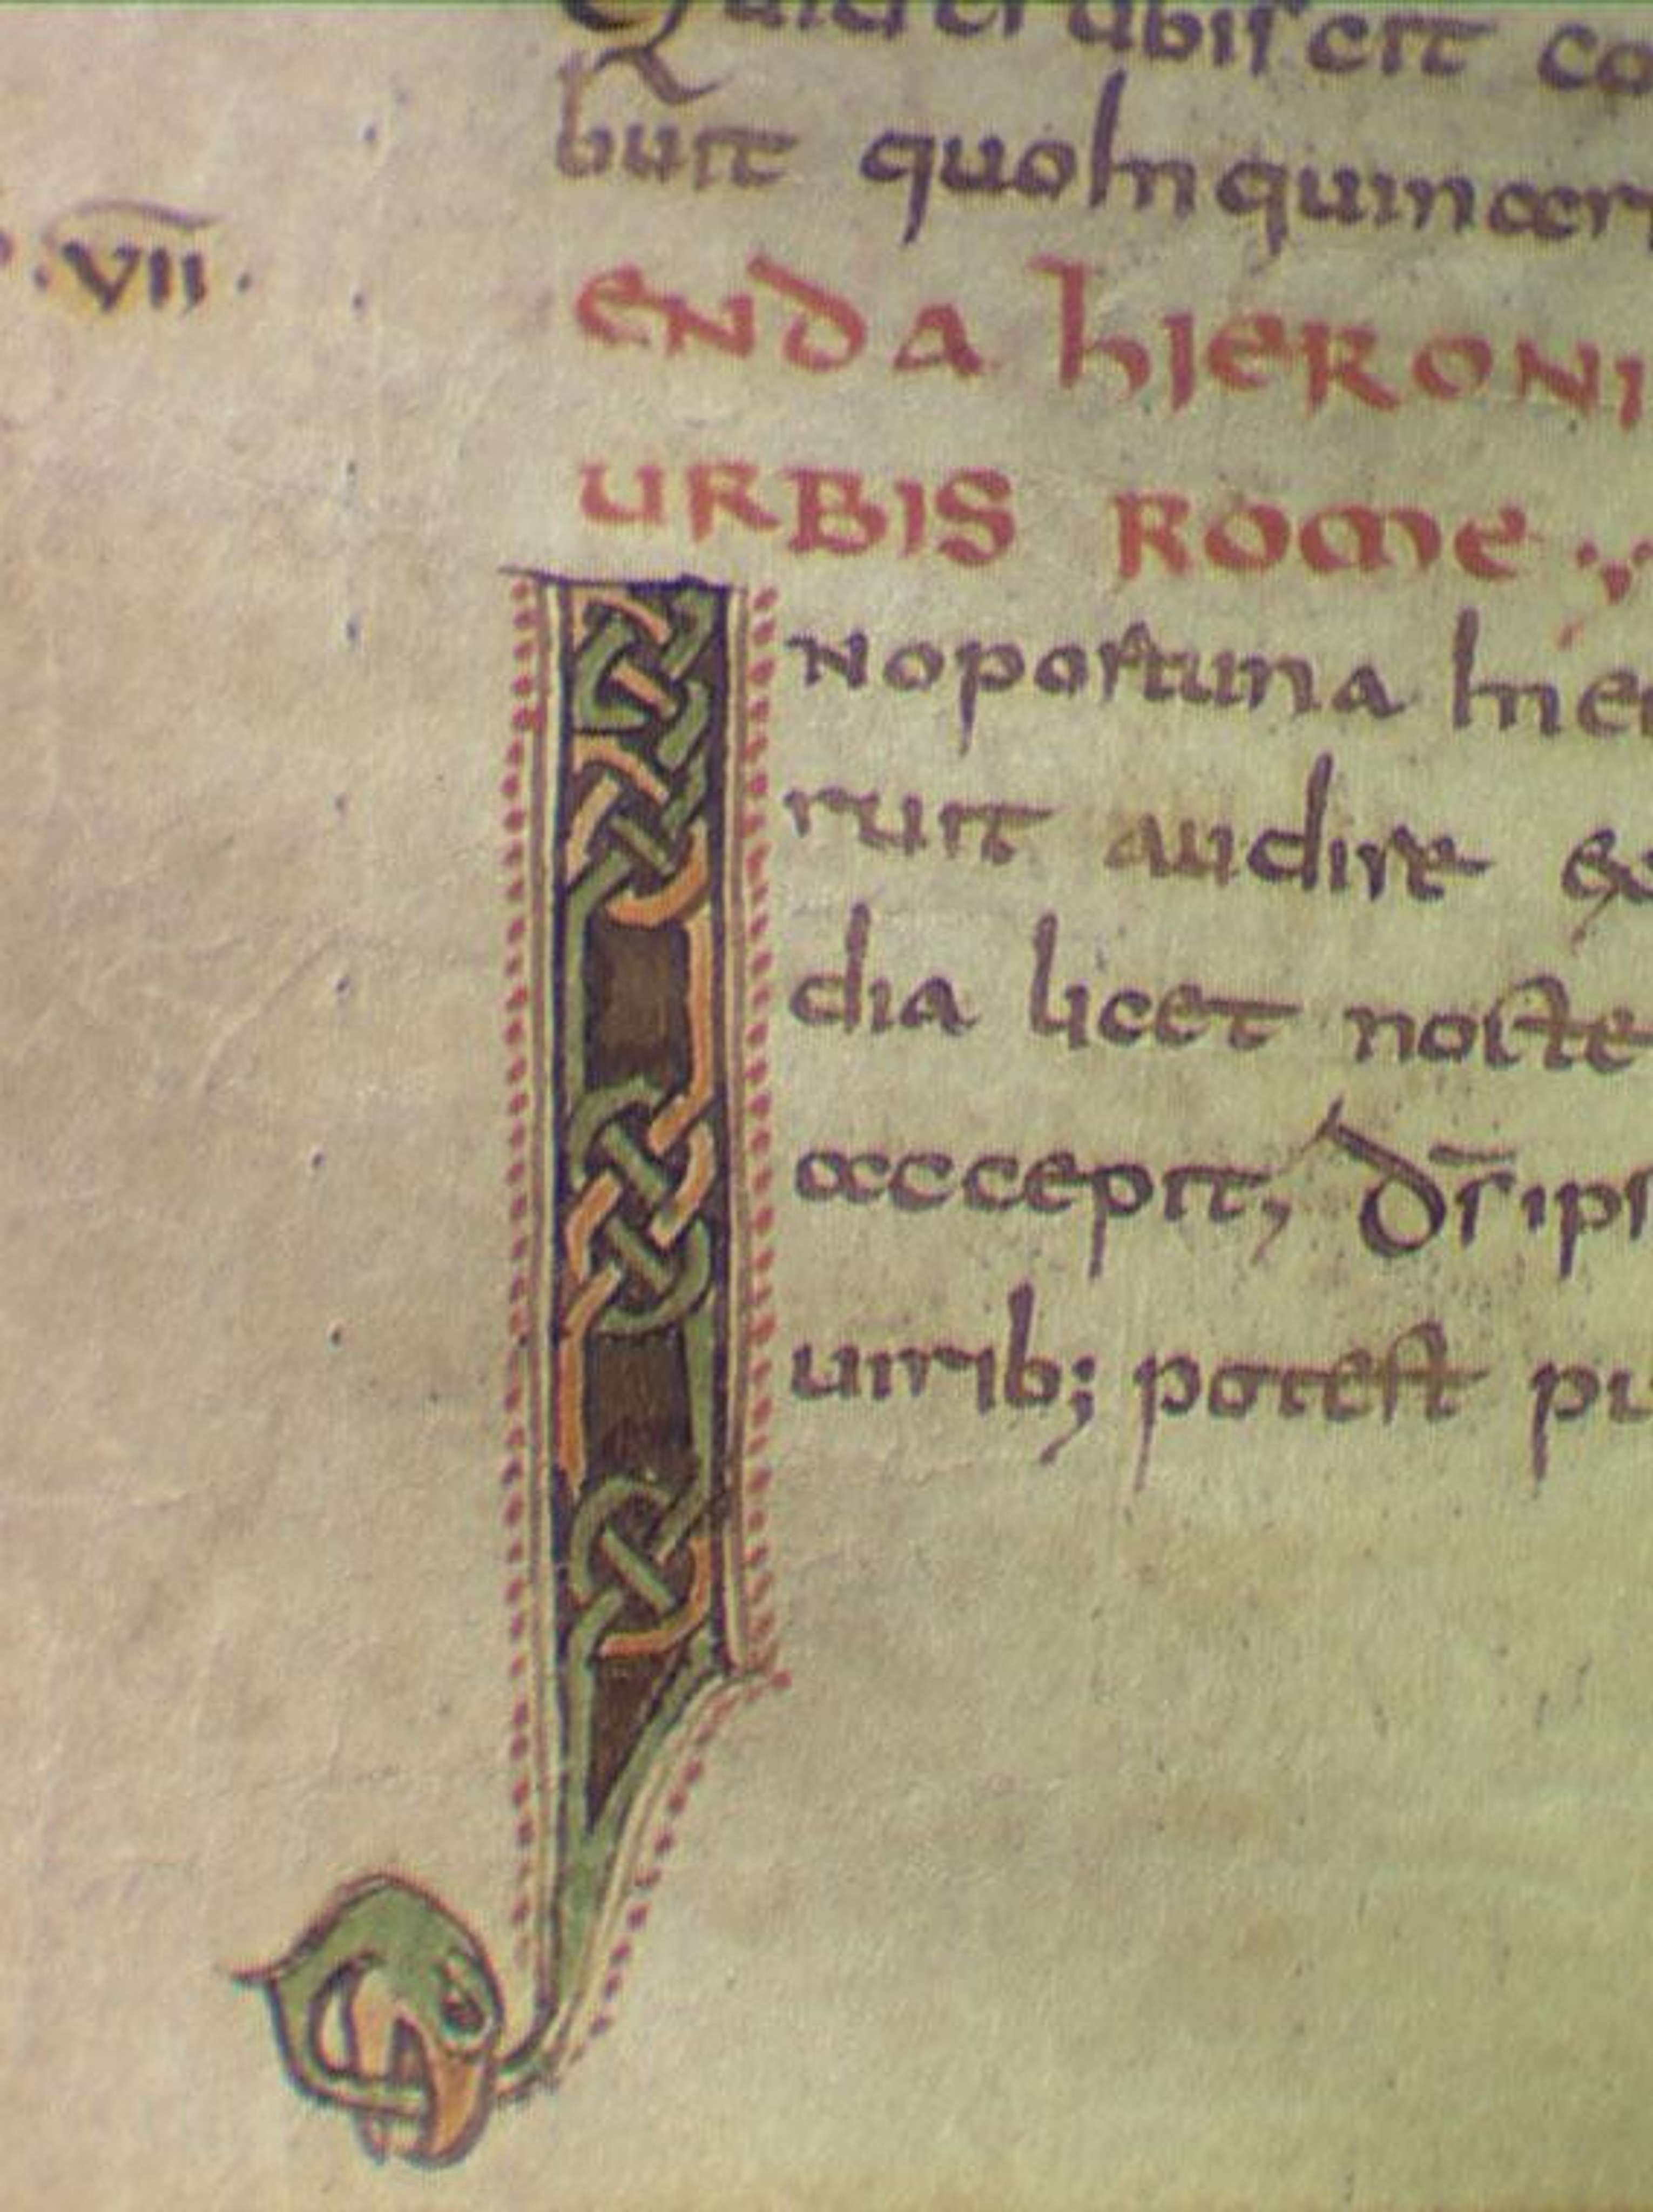 buit quo In quineter
·VII·
ENDA hIERONI
URBIS ROME
Noportuna hie
ruit audire
dia licet nocte
accepit, dr ips
uirib; potest pu